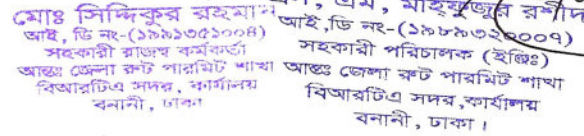 মোঃ সিদ্দিকুর রহমান
আই, ডি নং-(১৯৯১৩৫১০০৪)
সহকারী রাজস্ব কর্মকর্তা
আন্তঃ জেলা রুট পারমিট শাখা
বিআরটিএ সদর, কার্যালয়
বনানী, ঢাকা
এম, মাহফুজুর রশীদ
আই,ডি নং-(১৯৮৯৩২০০০৭)
সহকারী পরিচালক (ইঞ্জিঃ)
আন্তঃ জেলা রুট পারমিট শাখা
বিআরটিএ সদর,কার্যালয়
বনানী, ঢাকা।